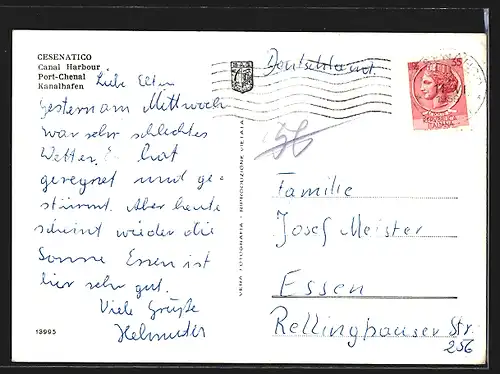 CESENATICO
Canal Harbour
Port-Chenal
Kanalhafen
Liebe Eltern
Gestern am Mittwoch
war sehr schlechtes
Wetter. Es hat
geregnet und ge-
stürmt. Aber heute
scheint wieder die
Sonne Essen ist
hier sehr gut.
Viele Grüße
13995
VERA FOTOGRAFIA - RIPRODUZIONE VIETATA
Deutschland.
35
REPUBBLICA
ITALIANA
56
Familie
Josef Meister
Essen
Rellinghauser Str.
256